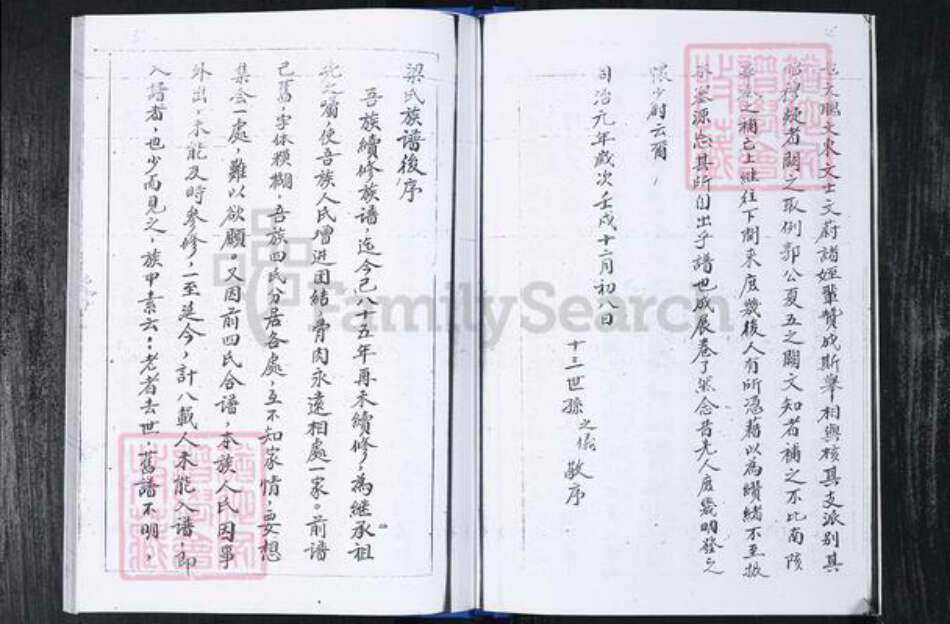 文鵬文東文士文蔚諸姪輩贊成斯舉相與核其支派別其
者闕之取例郭公夏五之闕文知者補之不比南陔
之補亡上繼往下開來庶幾後人有所憑藉以為纘緒不至
源忘其所自出乎譜也成展卷了然念昔先人庶幾明發之
懷少尉云爾
同治元年歲次壬戌十二月初八日
十三世孫之儀敬序
梁氏族譜後序
吾族續修族譜,迄今已八十五年再未續修,為繼承祖
先之囑,使吾族人民增進团結,骨肉永遠相處一家。前譜
已舊,字体模糊,吾族四氏分居各處,互不知家情,要想
集会一處,難以欲願。又因前四氏合譜,本族人民因事
外出,未能及時參修,一至延今,計八載人未能入譜,即
入譜者,也少而見之,族甲素云:老者去世,舊譜不明,
FamilySearch